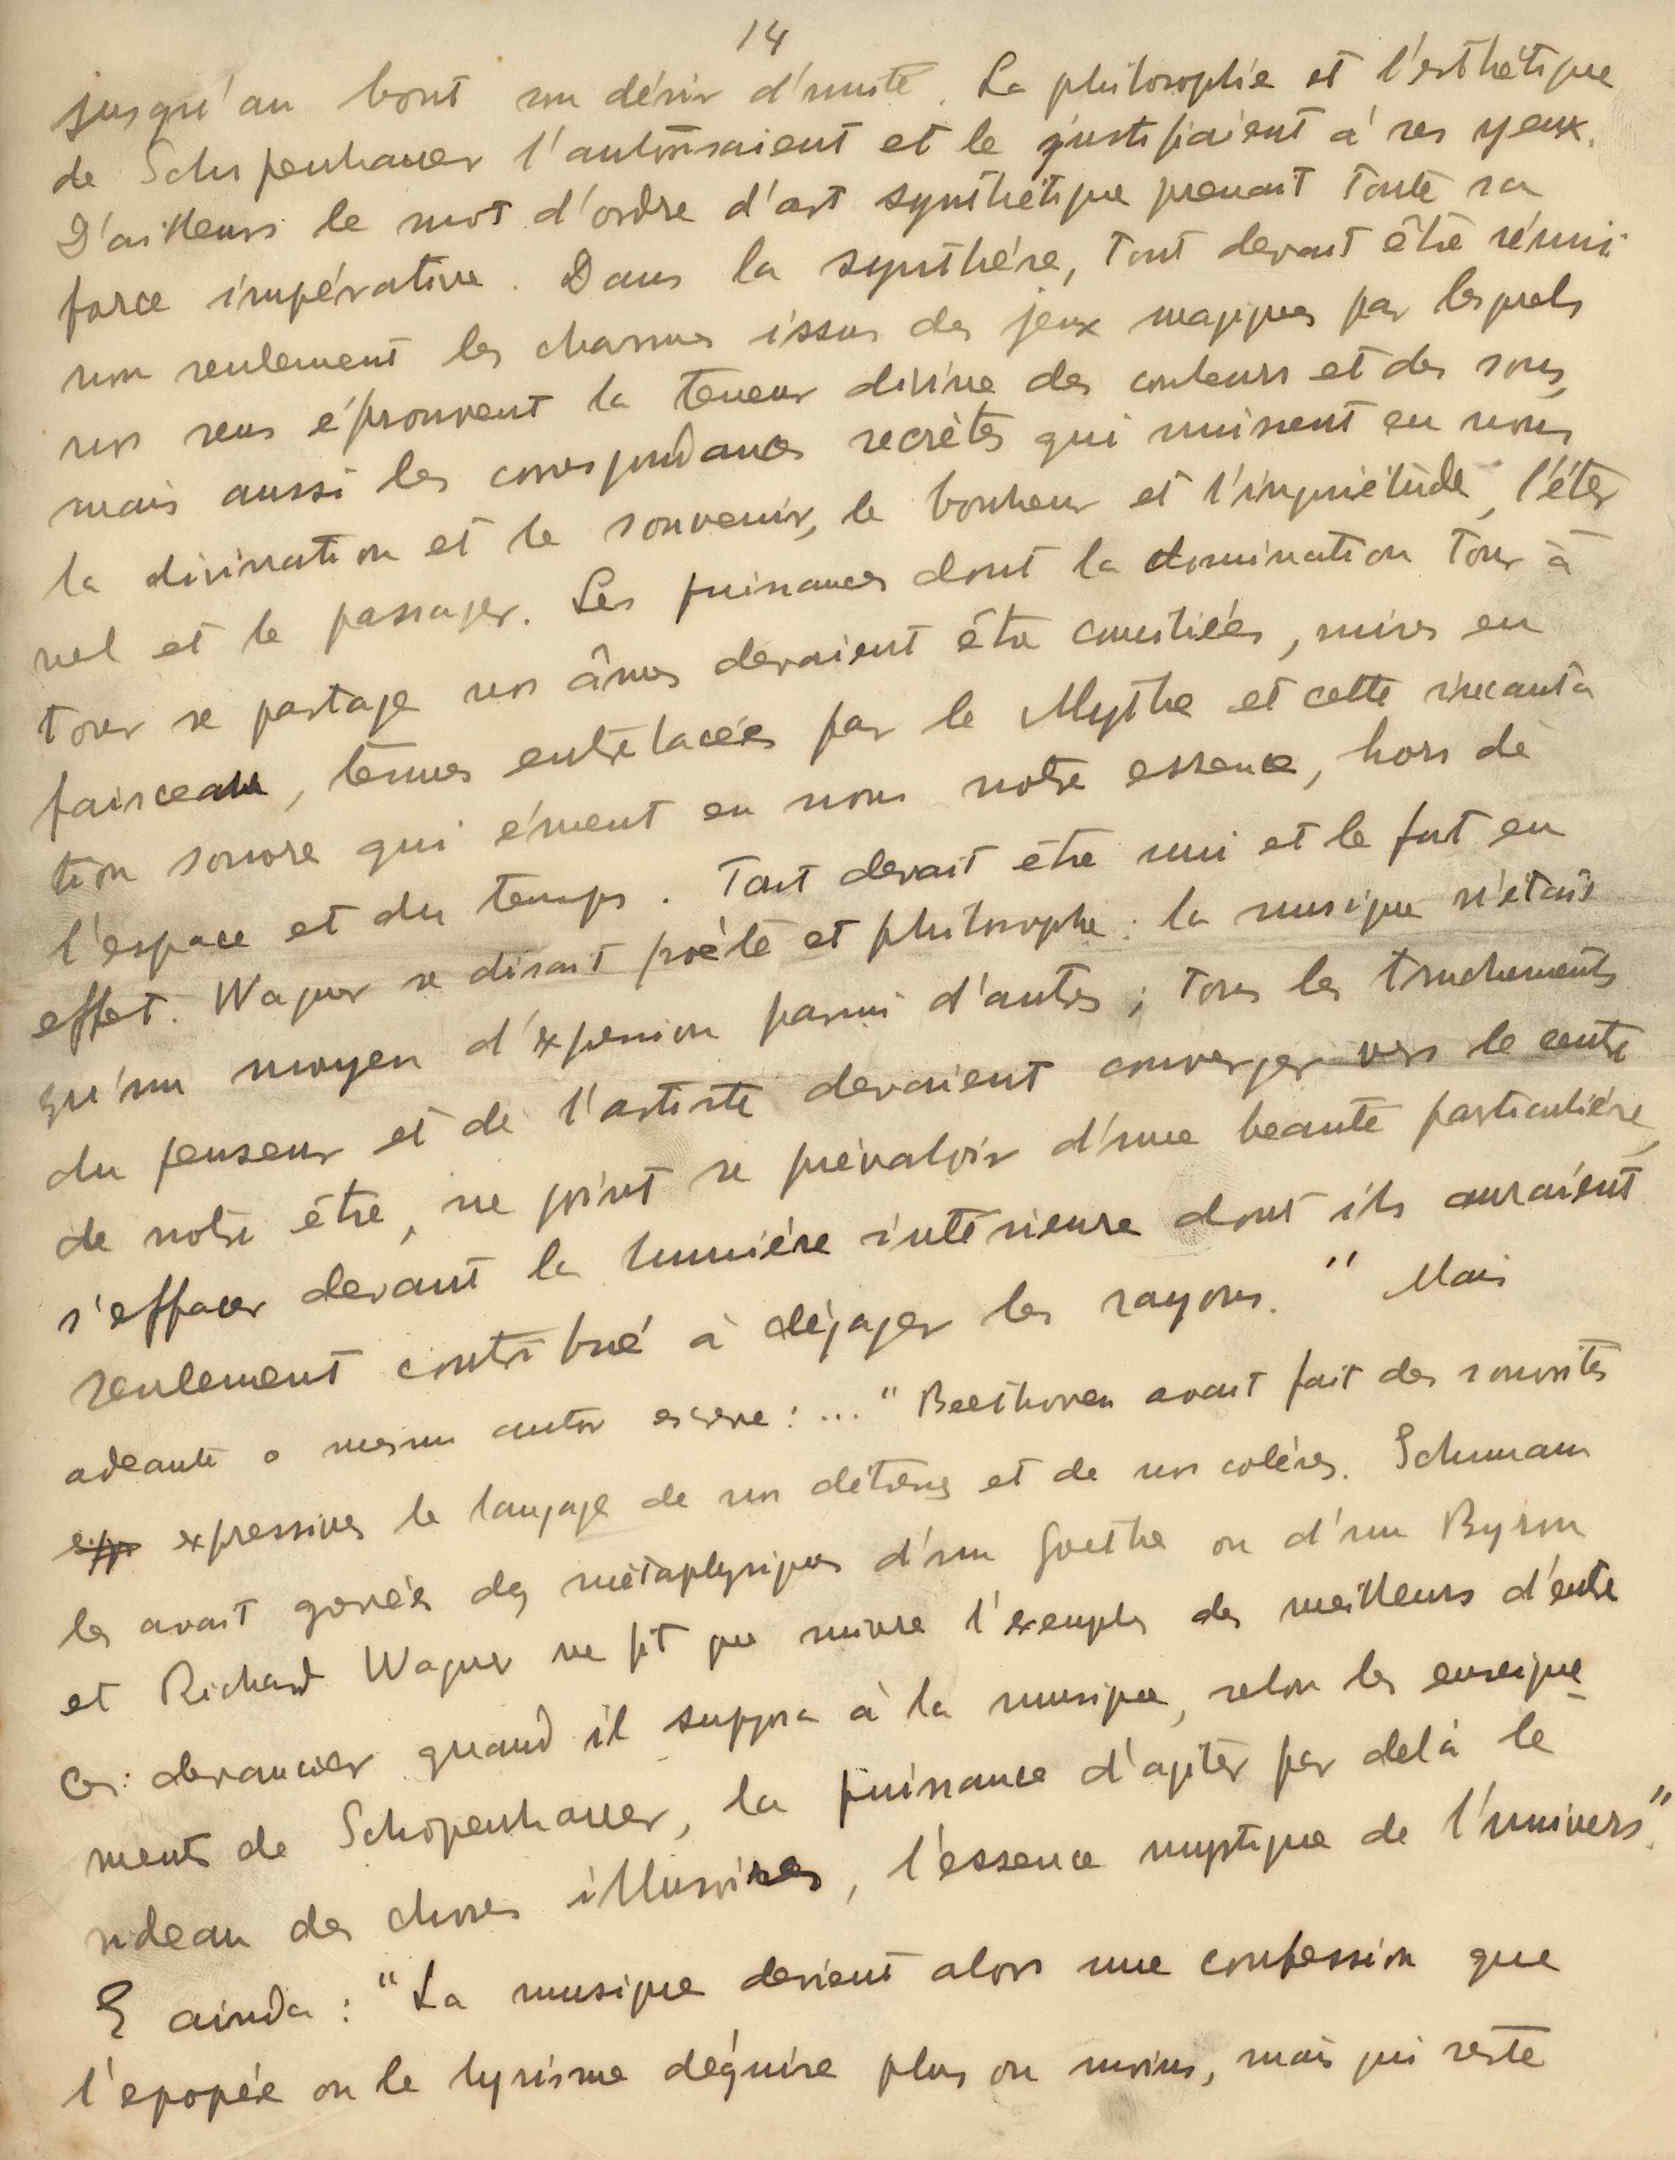 14
jusqu'au bout un désir d'unité. La philosophie et l'esthétique
de Schopenhauer l'autorisaient et le justifiaient à ses yeux.
D'ailleurs le mot d'ordre d'art synthétique prenait toute sa
force impérative. Dans la synthèse, tout devait être réuni:
non seulement les charmes issus des jeux magiques par lesquels
nos sens éprouvent la teneur divine des couleurs et des sons,
mais aussi les correspondances secrètes qui unissent en nous
la divination et le souvenir, le bonheur et l'inquiétude, l'éter
nel et le passager. Les puissances dont la domination tour à
tour se partage nos âmes devaient être conciliées, mises en
faisceau, tenues entrelacées par le Mythe et cette incanta
tion sonore qui émeut en nous notre essence, hors de
l'espace et du temps. Tout devait être uni et le fut en
effet. Wagner se disait poète et philosophe: la musique n'était
qu'un moyen d'expression parmi d'autres; tous les truchements
du penseur et de l'artiste devaient converger vers le centre
de notre être, ne point se prévaloir d'une beauté particulière,
s'effacer devant la lumière intérieure dont ils auraient
seulement contribué à dégager les rayons." Mais
adeante o mesmo autor escreve: ... "Beethoven avait fait des sonorités
expressives le langage de nos détresses et de nos colères. Schumann
les avait gorgées des métaphysiques d'un Goethe ou d'un Byron
et Richard Wagner ne fit que suivre l'exemple des meilleurs d'entre
ces devancier quand il supposa à la musique, selon les enseigne-
ments de Schopenhauer, la puissance d'agiter par delà le
rideau des choses illusoires, l'essence mystique de l'univers".
E ainda: "La musique devient alors une confession que
l'epopée ou le lyrisme déguise plus ou moins, mais qui reste